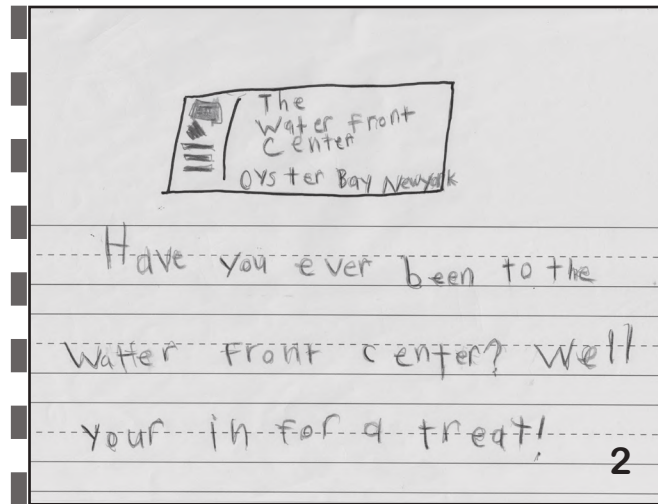 The
Water Front
Center
Oyster Bay Newyork
Have you ever been to the
Watter Front center? Well
your in for a treat!
2